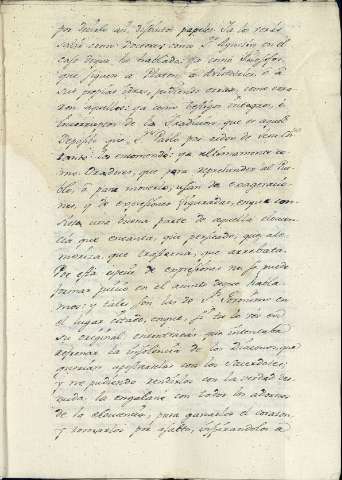 por decirlo así, distintos papeles. Ya los verás
salir como Doctores, como Sn. Agustin en el
caso de que he hablado; ya como Philosofos,
que siguen a Platon, a Aristoteles, o a
sus propias ideas, pudiendo errar, como erra-
ron aquellos; ya como testigos integros, é
incorruptos de la tradicion, que es aquel
Deposito que Sn. Pablo
tanto les encomendó; ya ultimamente co-
mo Oradores, que para reprehender al Pue-
blo, o para moverlo, usan de exageracio-
nes, y de expresiones figuradas, en que con-
siste una buena parte de aquella eloquen-
cia que encanta, que persuade, que
que trastorna, que arrebata.
De esta especie de expresiones no se puede
formar juicio en el asunto de que habla-
mos: y tales son las de Sn. Geronimo en
el lugar citado, en que, si tu lo ves en
su original, encontrarás que intentaba
refrenar la insolencia de los Diaconos, que
querian igualarse con los Sacerdotes;
y no pudiendo rendirlos con la verdad des-
nuda, la engalana con todos los adornos
de la eloquencia, para ganarles el corazon,
y tomarlos por asalto, inspirandoles a